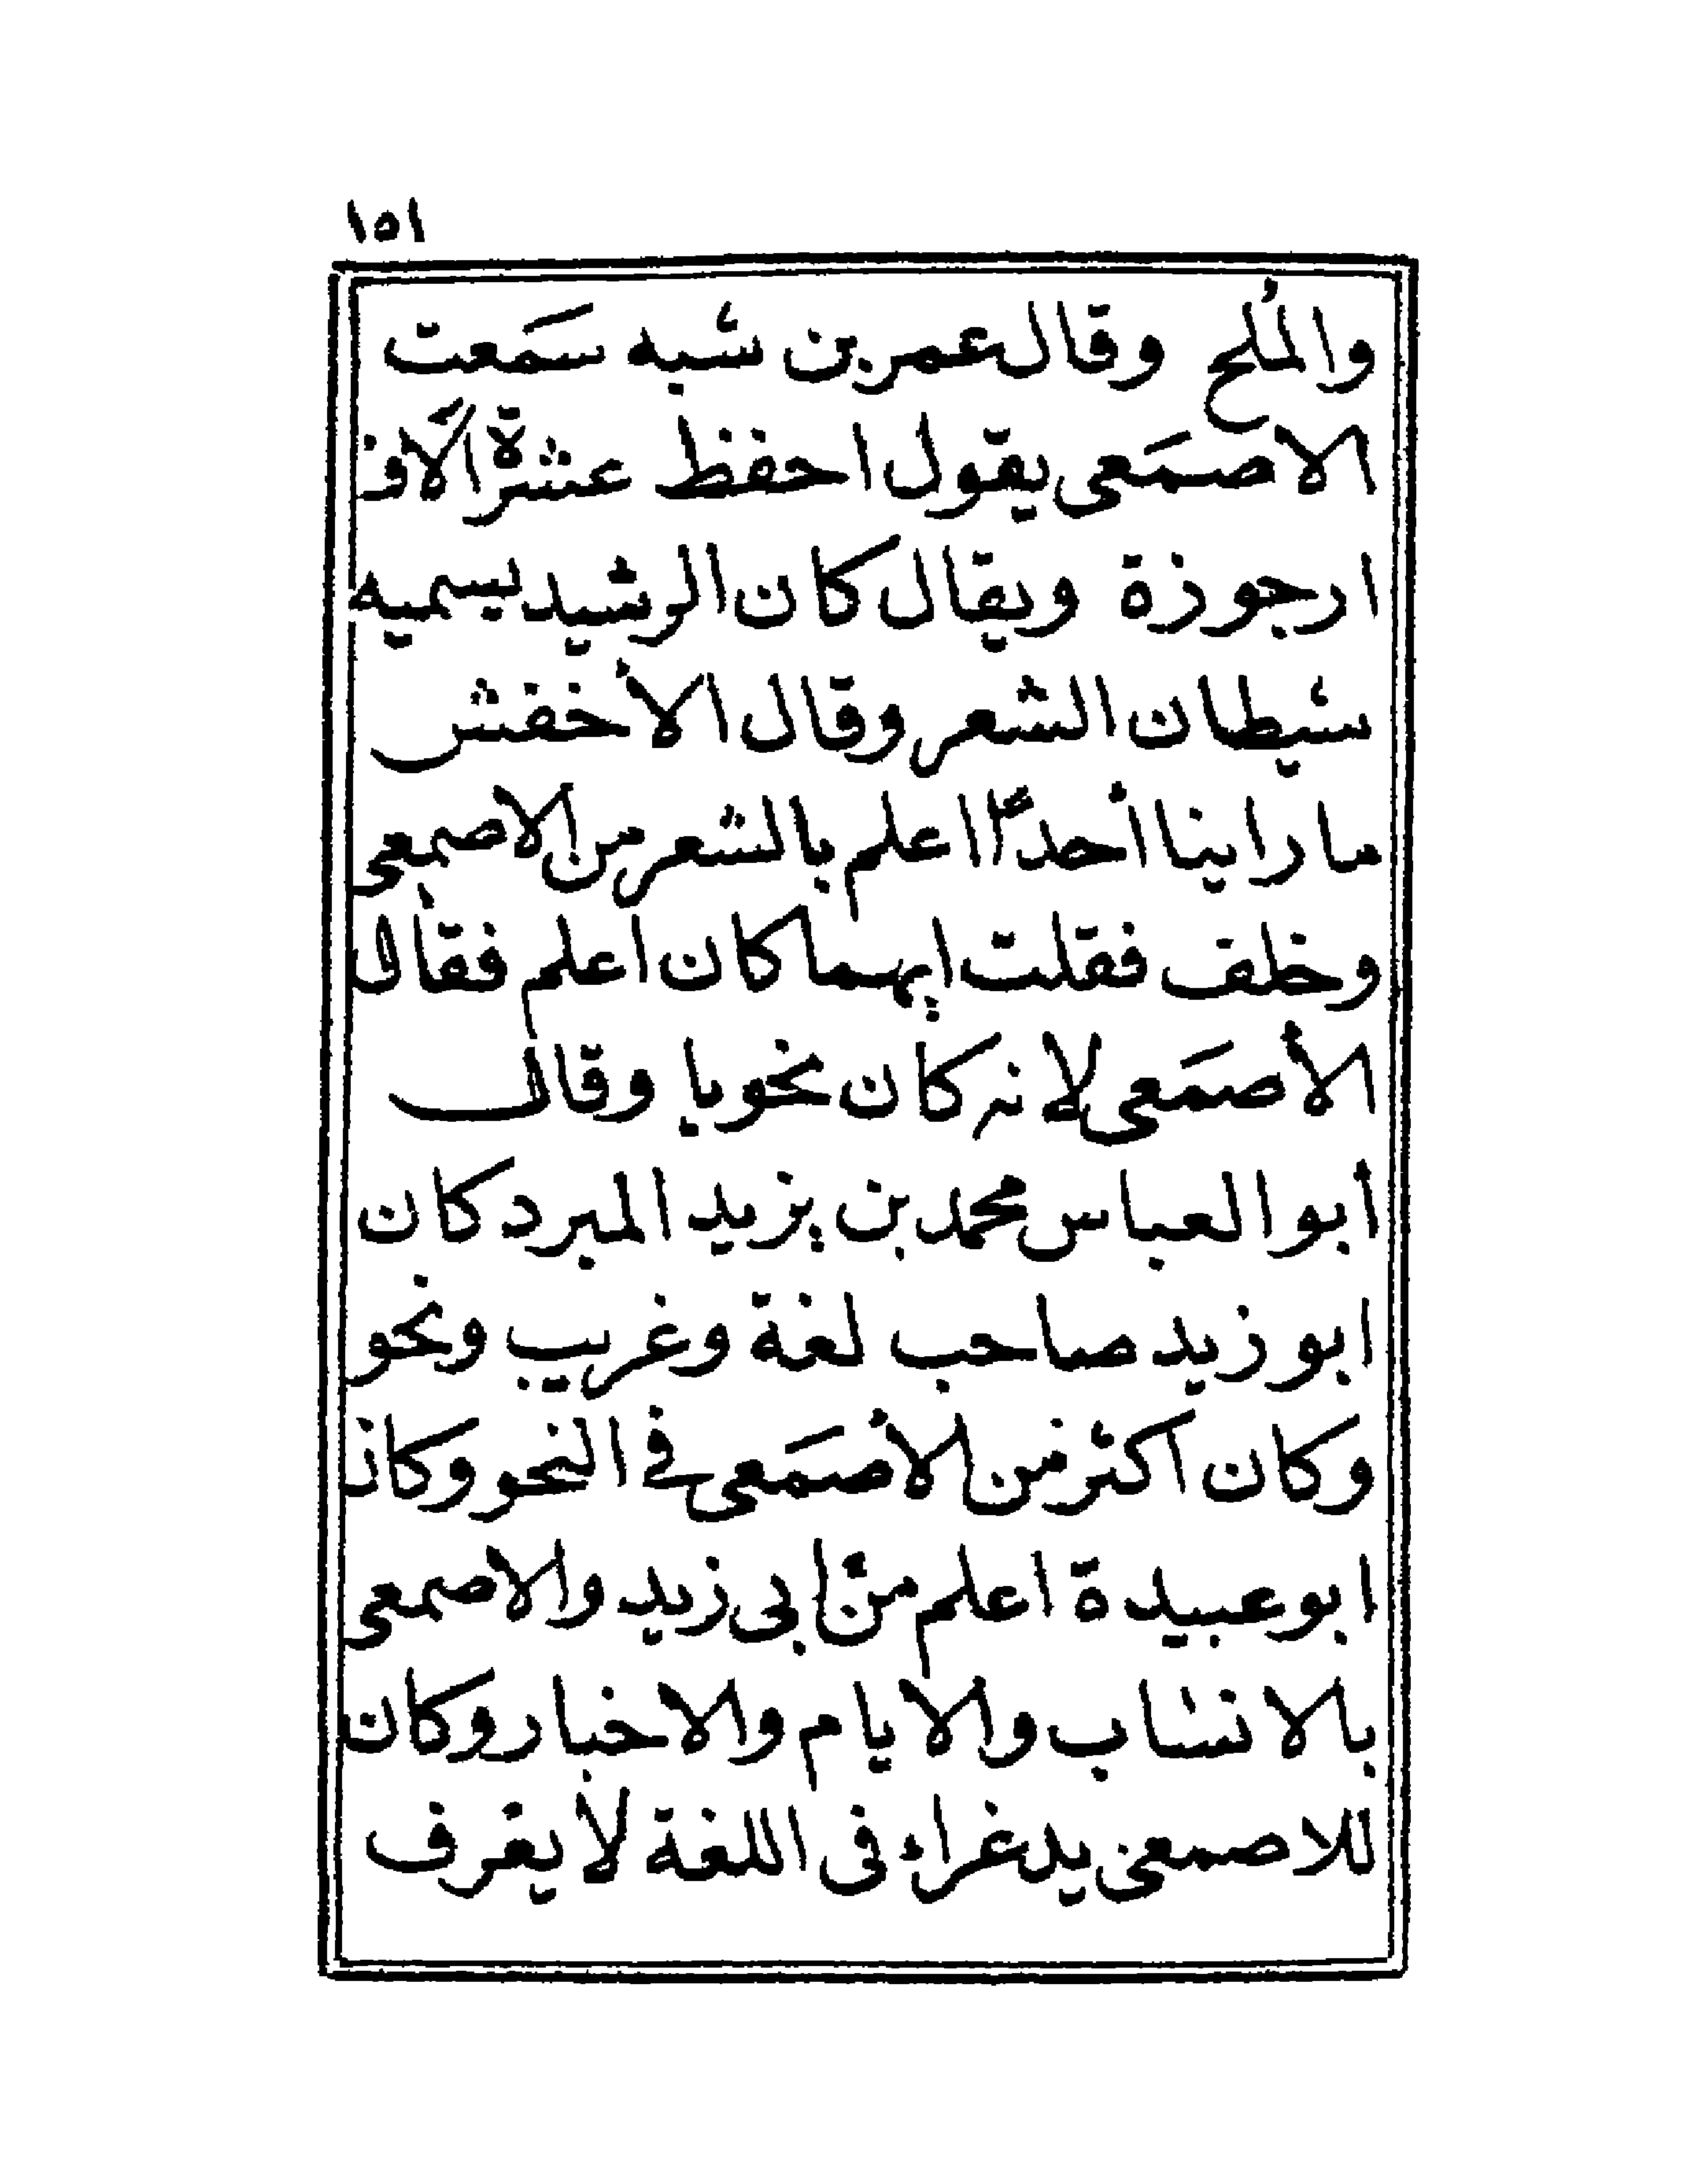 ١٥١
والمُلح وقال عمر بن شبه سَمَعت
الاصمَعى يقول احفظ عشرة الآف
ارجوذة ويقال كان الرشيد يسميه
شيطان الشعر وقال الأخفش
ما راينا أحدًا اعلم بالشعر من الاصمعى
وخلف فقلت ايهما كان اعلم فقال
الأصمَعى لانه كان نحويا وقال
أبو العباس محمد بن يزيد المبرد كان
ابو زيد صاحب لغة وغريب ونحو
وكان اكثر من الأصمَعى فى النحو وكان
ابو عبيدة اعلم من ابى زيد والاصمعى
بالانساب والايام والاخبار وكان
للاصمعى يد غراء فى اللغة لا يعرف